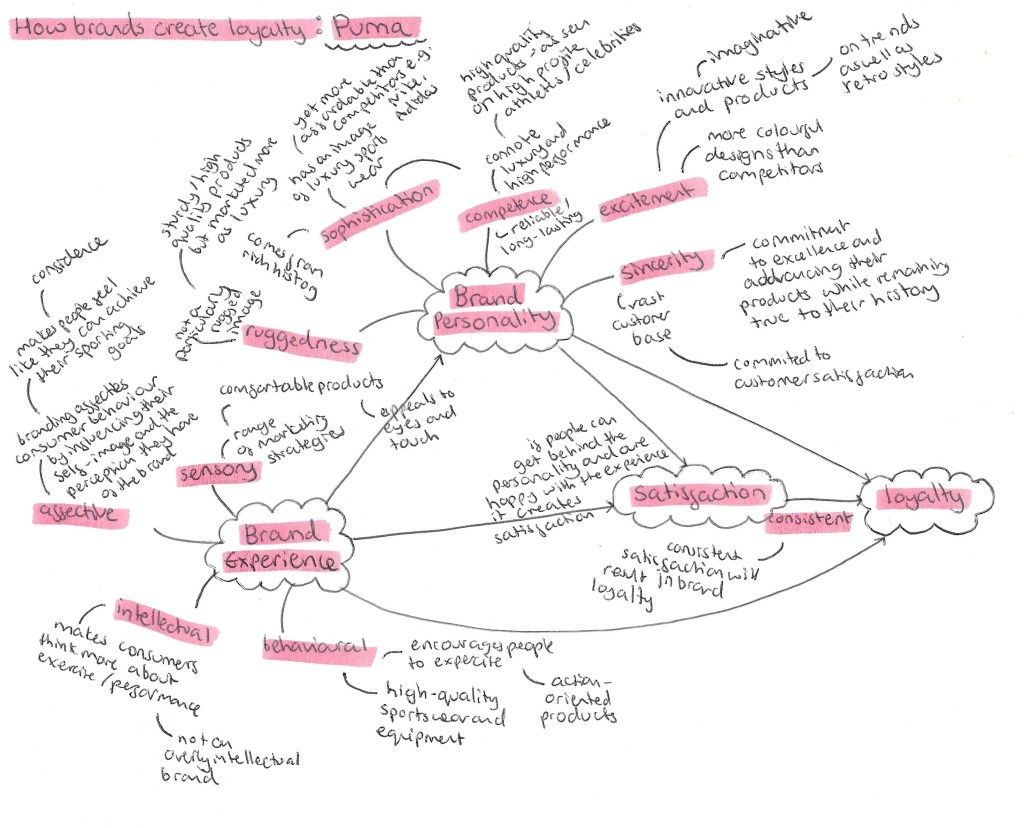 How brands create loyalty: Puma
yet more
affordable than
competitors e.g.
Nike,
Adidas
has an image
of luxury sports
wear
sophistication
comes from
rich history
high quality
products - as seen
on high profile
athletes/celebrities
connote
luxury and
high performance
competence
reliable/
long-lasting
imaginative
innovative styles
and products
on trends
as well as
retro styles
more colourful
designs than
competitors
excitement
sincerity
commitment
to excellence and
addvancing their
products while remaining
true to their history
vast
customer
base
commited to
customer satisfaction
sturdy/high
quality products
but marketed more
as luxury
not a
particularly
rugged
image
ruggedness
Brand
Personality
confidence
makes people feel
like they can achieve
their sporting
goals
branding affectes
consumer behaviour
by influencing their
self-image and the
perception they have
of the brand
affective
comfortable products
appeals to
eyes and
touch
range
of marketing
strategies
sensory
Brand
Experience
intellectual
makes consumers
think more about
exercise/performance
not an
overly intellectual
brand
behavioural
encourages people
to exercise
action-
oriented
products
high-quality
sportswear and
equipment
if people can
get behind the
personality and are
happy with the experience
it creates
satisfaction
satisfaction
consistent
consistent
satisfaction will
result in brand
loyalty
loyalty